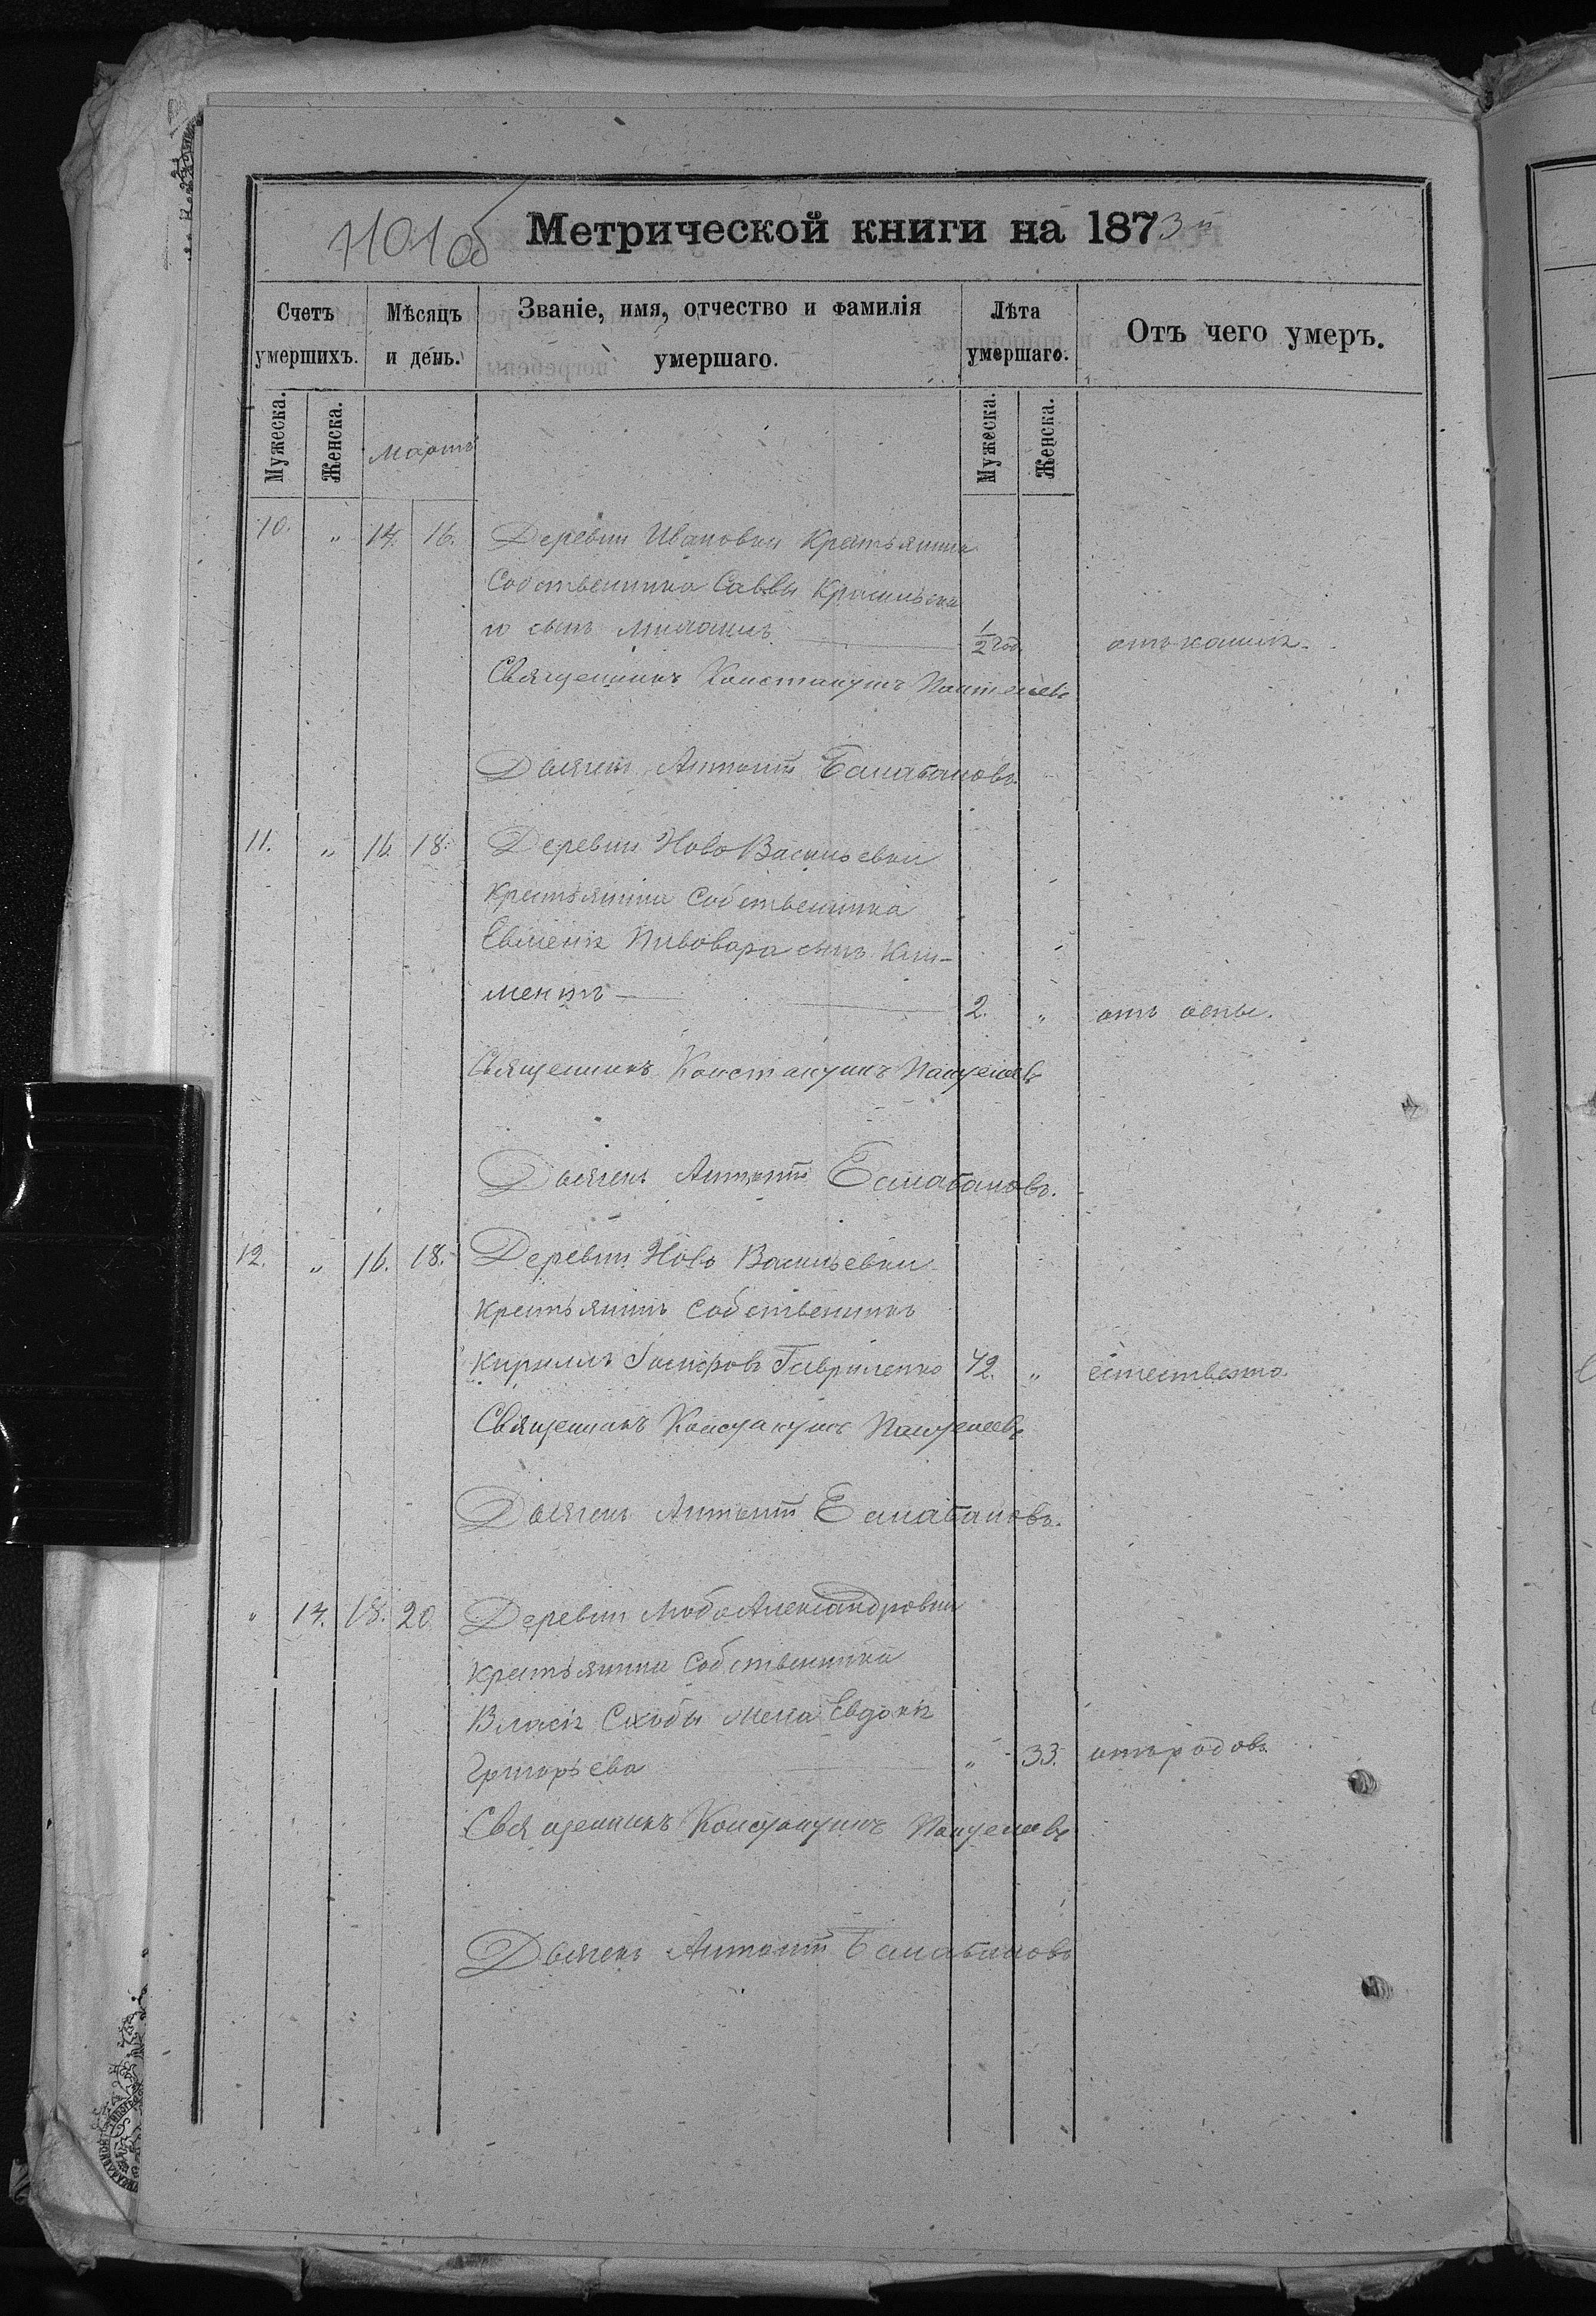 1101об Метрической книги на 1873й
Счетъ умершихъ.
Мѣсяцъ и день.
Званіе, имя, отчество и фамилія умершаго.
Лѣта умершаго.
Отъ чего умеръ.
Мужеска. Женска. Мартъ Мужеска. Женска.
10. " 14. 16. Деревни Ивановки Крестьянина
Собственника Саввы Красильска
го сынъ Михаилъ ½ год. отъ кашля.
Священникъ Константинъ Пантелеевъ
Дьячекъ Антоній Балабановъ.
11. " 16. 18. Деревни Ново Васильевки
Крестьянина Собственника
Евсиевія Пивовара сынъ Кли-
ментъ 2. " отъ оспы.
Священникъ Константинъ Пантелеевъ
Дьячекъ Антоній Балабановъ.
12. " 16. 18. Деревни Ново Васильевки
Крестьянинъ Собственникъ
Кириллъ Гавриленко 42. " естественно.
Священникъ Константинъ Пантелеевъ
Дьячекъ Антоній Балабановъ.
" 14. 18. 20 Деревни Любо Александровки
крестьянина Собственника
Власія жена Евдокія
Григорьева " 33. отъ родовъ.
Священникъ Константинъ Пантелеевъ
Дьячекъ Антоній Балабановъ